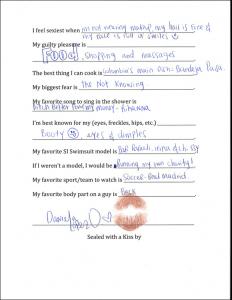 I feel sexiest when im not wearing makeup my hair is free &
my face is full of smiles ☺
My guilty pleasure is
FOOD, shopping and massages
The best thing I can cook is Colombia's main dish - Bandeja Paisa
My biggest fear is the Not Knowing
My favorite song to sing in the shower is
Bitch Better Have my money - Rihanna
I'm best known for my (eyes, freckles, hips, etc.)
Booty ☺ eyes & dimples
My favorite SI Swimsuit model is Bar Rafaeli, irina &
If I weren't a model, I would be Running my own charity!
My favorite sport/team to watch is Soccer - Real Madrid
My favorite body part on a guy is Back
Sealed with a Kiss by